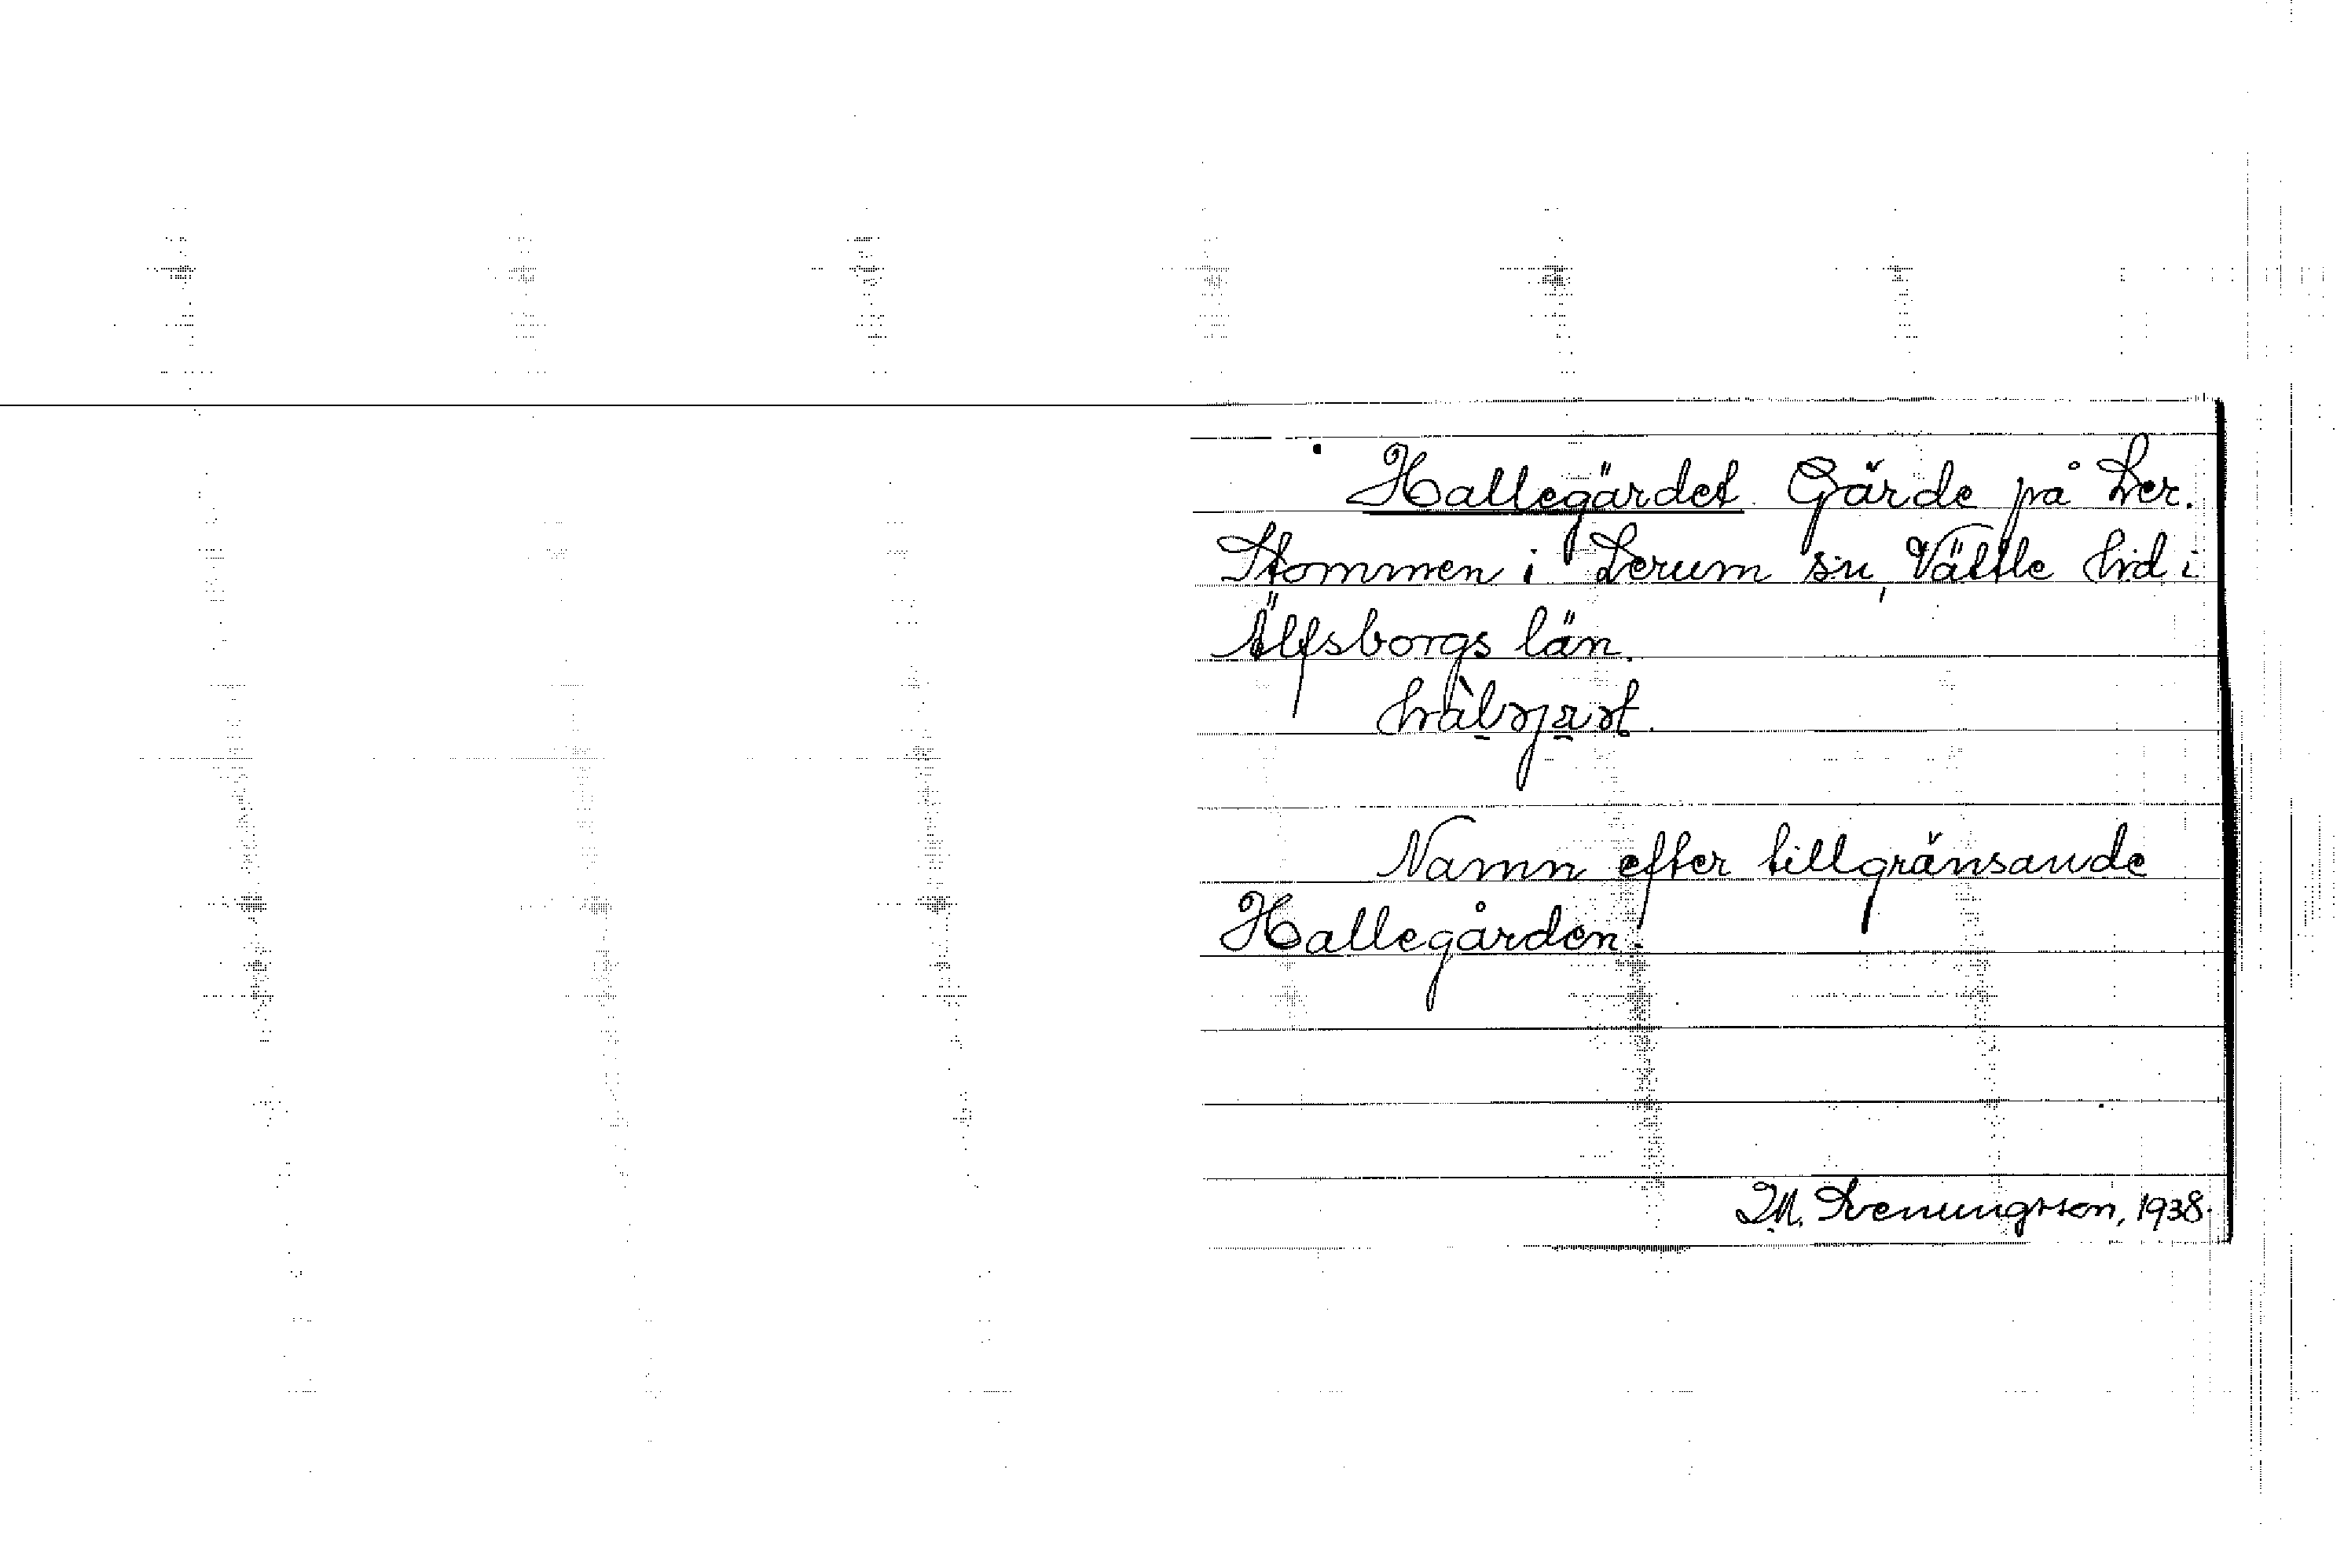 Hallegärdet. Gärde på Ler.
Stommen i Lerum sn, Vättle hrd i
Älfsborgs län.
Namn efter tillgränsande
Hallegården.
M. Svenungsson, 1938.